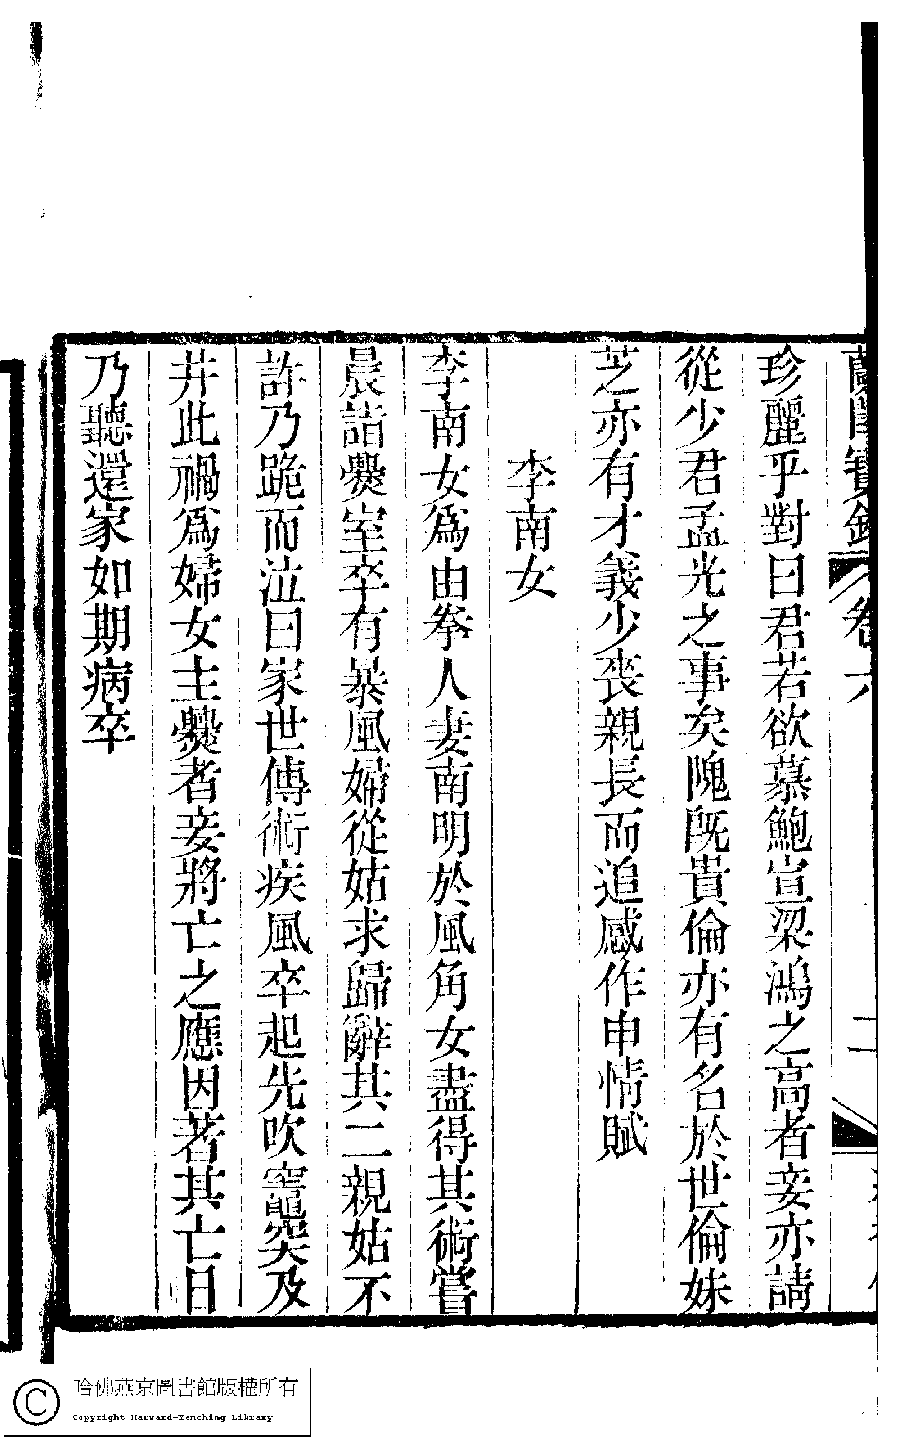 蘭閨寶錄 卷六 二
珍麗乎對曰君若欲慕鮑宣梁鴻之高者妾亦請
從少君孟光之事矣隗既貴倫亦有名於世倫妹
芝亦有才義少喪親長而追感作申情賦
李南女
李南女爲由拳人妻南明於風角女盡得其術嘗
晨詣爨室卒有暴風婦從姑求歸辭其二親姑不
許乃跪而泣曰家世傳術疾風卒起先吹竈突及
井此禍爲婦女主爨者妾將亡之應因著其亡日
乃聽還家如期病卒
哈佛燕京圖書館版權所有
Copyright Harvard-Yenching Library